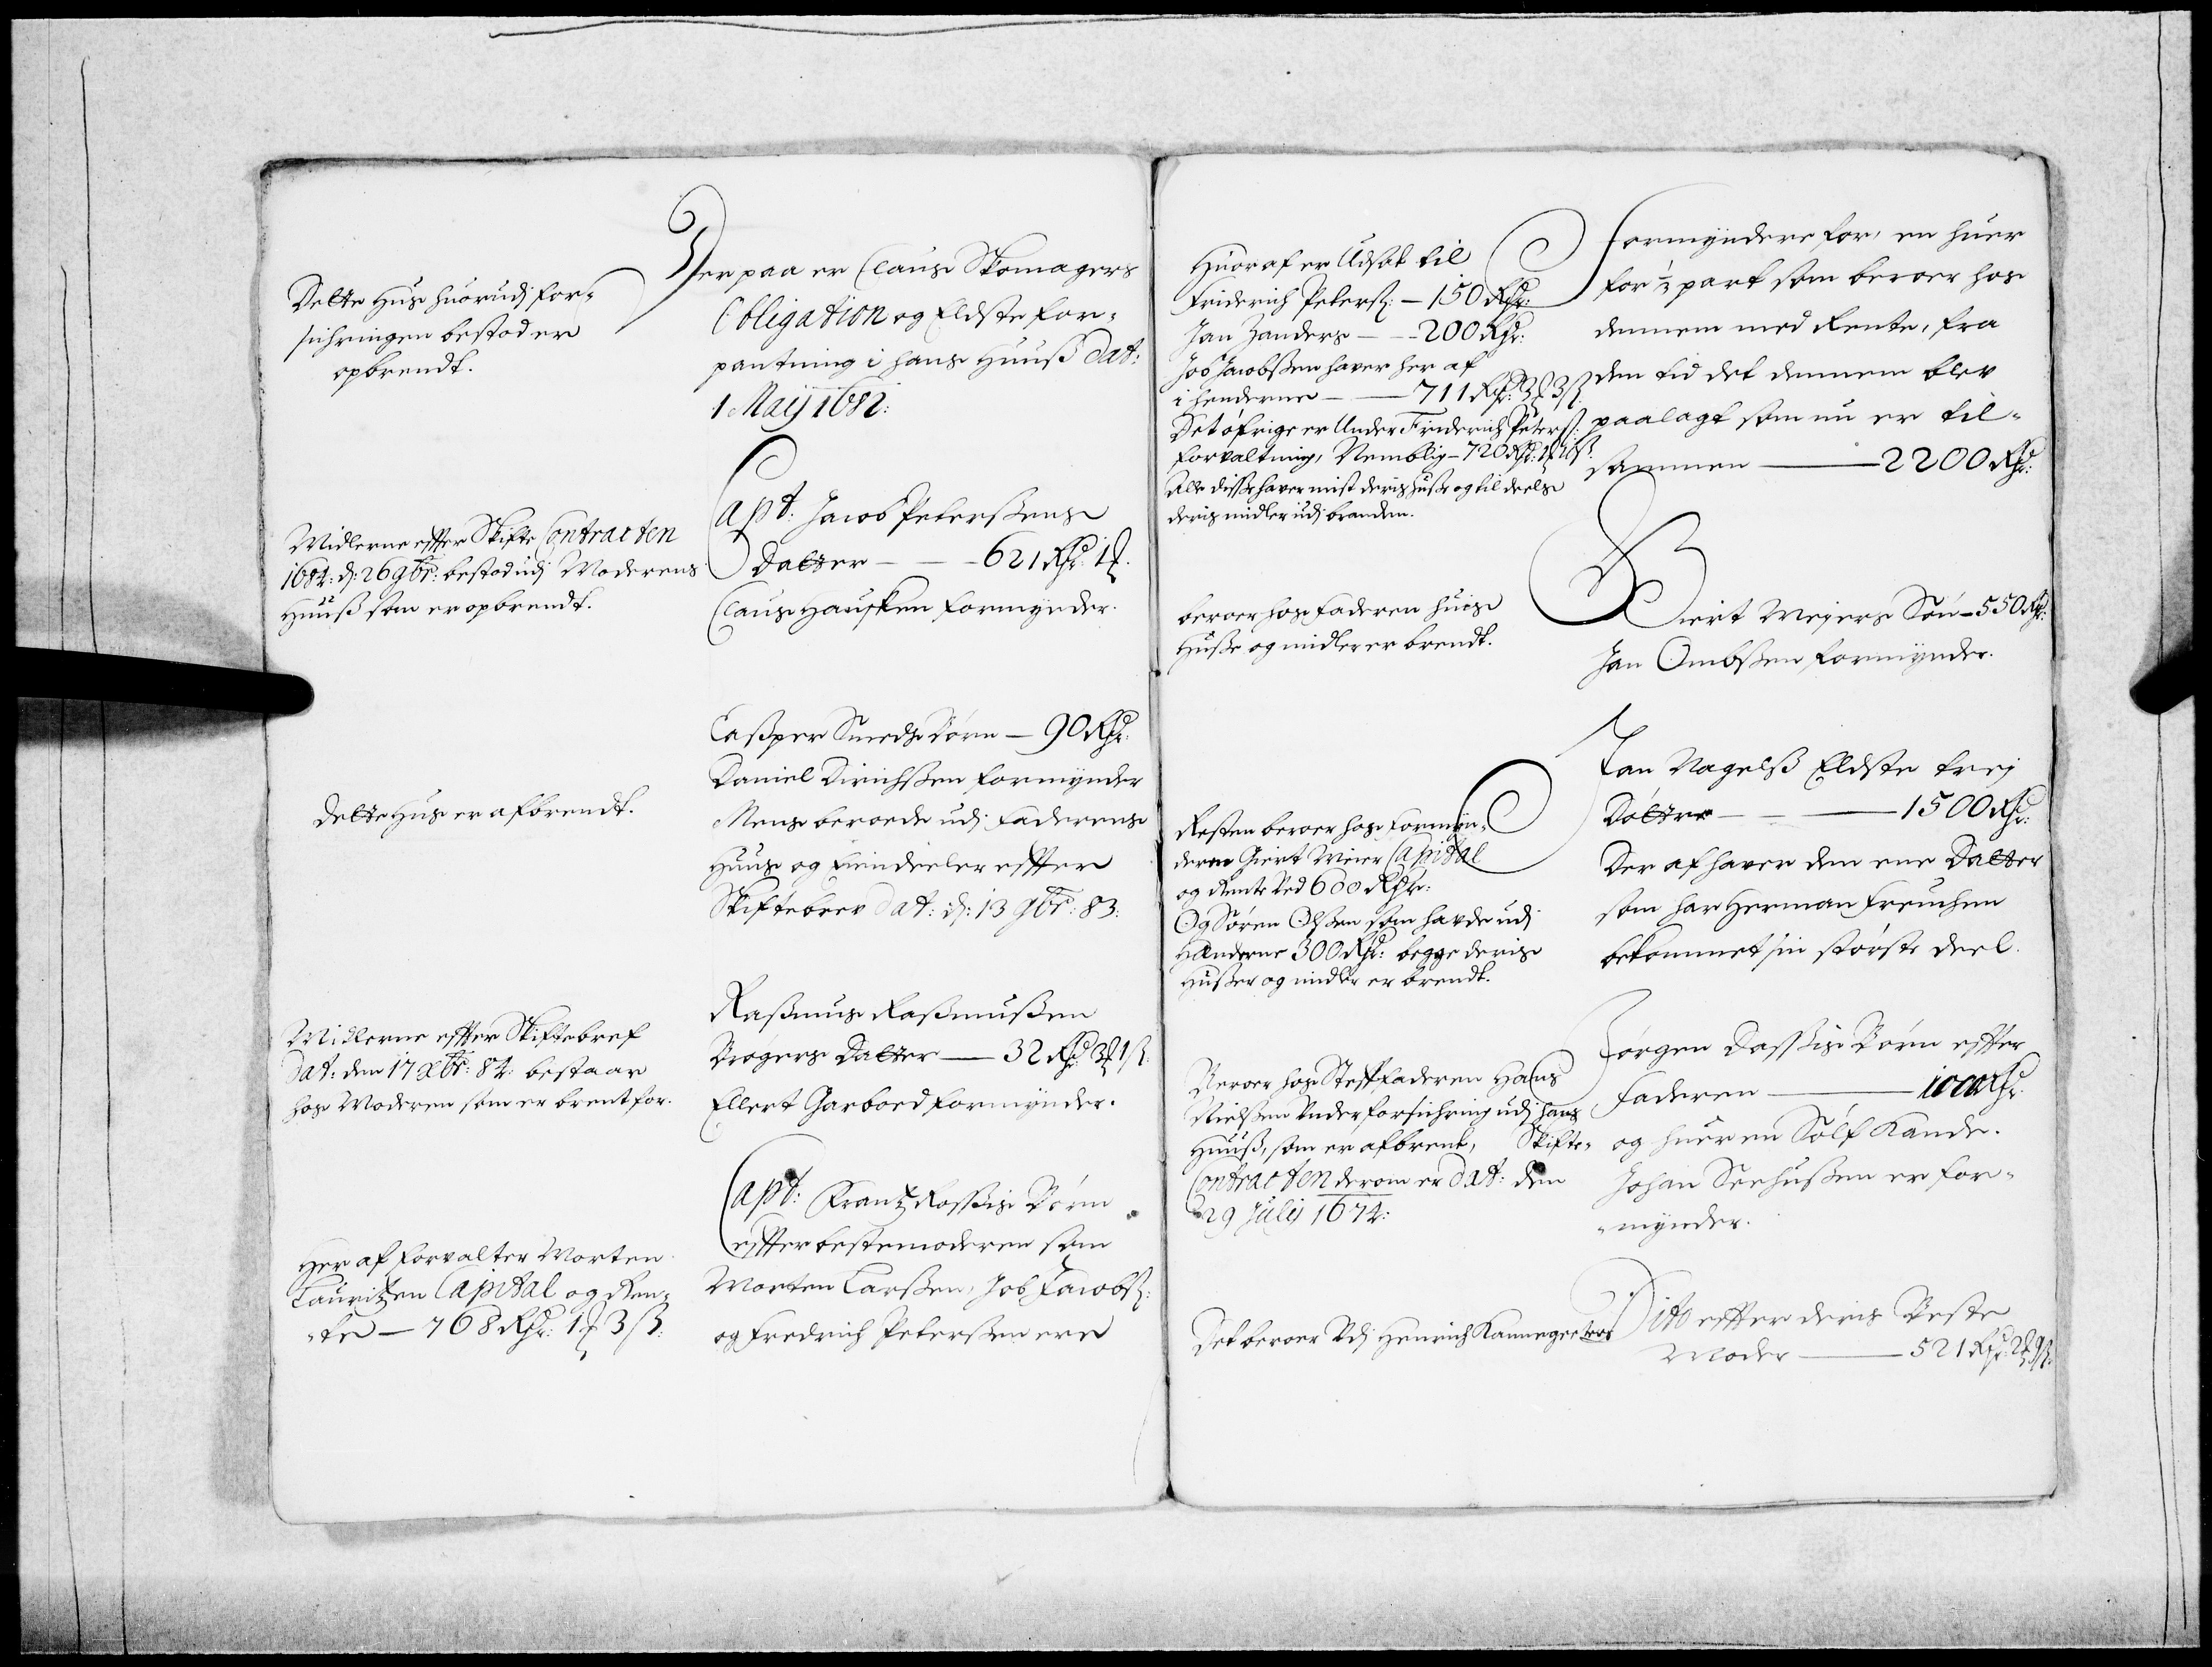 Dette Huus huorudj for-
sichringen bestod er
opbrendt.
Der paa er Claus Skomagers
Obligation og Eldste for-
pantning i hans Huuß dat:
1 Maij 1682:
Midlerne effter Skifte Contracten
1684: d: 26 9br: bestod udj Moderens
Huuß som er opbrendt.
Capt: Jacob Peterßens
Datter — 621 Rdr: 1 ℔.
Claus Hausken formynder.
Dette Huus er afbrendt.
Casper Smeds Børn — 90 Rdr:
Daniel Dirichßen formynder
Mens beroede udj Faderens
Huus og Eiendeeler effter
Skiftebrev dat: d: 13 9br: 83:
Midlerne effter Skiftebref
dat: den 17 Xbr: 84: bestaar
hos Moderen som er brent for.
Rasmus Rasmußen
Brøgers Datter — 32 Rdr: 3 ℔ 1 ß:
Ellert Garboed formynder.
Her af forvalter Morten
Lauritzen Capital og Ren-
-te — 768 Rdr: 1 ℔ 3 ß:
Capt: Frantz Roßis Børn
effter bestemoderen som
Morten Larßen, Job Jacobß:
og Fredrich Peterßen ere
Huor af er Udsat til
Friderich Peterß: — 150 Rdr:
Jan Zanders — 200 Rdr:
Job Jacobßen haver her af
i henderne — 711 Rdr: 3 ℔ 3 ß.
Det øfrige er Under Friderich Peterß:
forvaltning, Nemblig — 720 Rdr:
Alle disse haver mist deris Huße og til deels
deris midler udj branden.
formyndere for, en huer
for ⅓ part som beroer hos
dennem med Rente, fra
den tid det dennem blev
paalagt som nu er til-
sammen — 2200 Rdr:
beroer hos Faderen huis
Huße og midler er brendt.
Giert Meyers Søn — 550 Rdr:
Jan Ombßen formynder.
Resten beroer hos Formyn-
deren Giert Meier Capital
og Rente Ved 600 Rdr:
Og Søren Olßen som havde udj
Hænderne 300 Rdr: begge deris
Hußer og midler er brendt.
Jan Nagelß Eldste trej
Døttre — 1500 Rdr:
Der af haver den ene Datter
som har Herman Freuchen
bekommet sin største deel.
Beroer hos Steffaderen Hans
Nielßen Under forsichring udj hans
Huuß, som er afbrent, Skifte-
Contracten derom er dat: den
29 Julij 1674:
Jørgen Daßis Børn effter
Faderen — 1000 Rdr:
og huer en Sølf Kande.
Johan Seehußen er for-
-mynder.
Det beroer Udj Henrich Kannegeeters
Dito effter deris Beste
Moder — 521 Rdr: 2 ℔ 9 ß: